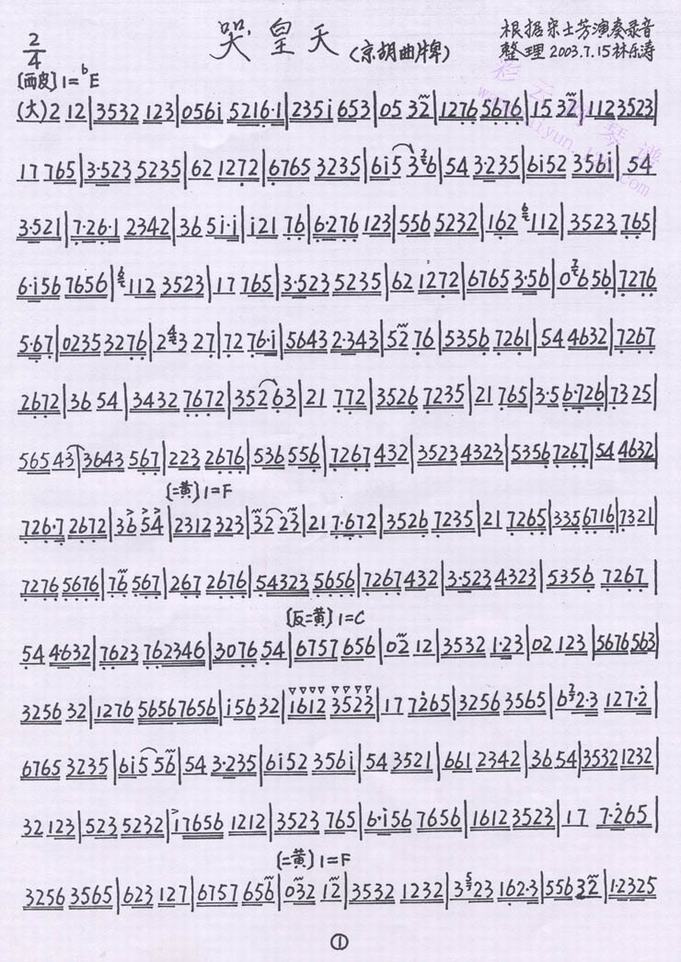 2/4
哭皇天(京胡曲牌)
根据宋士芳演奏录音
整理2003.7.15林乐涛
[西皮]1=bE
(大)2 12|3532 123|056i 5216·1|235i 653|05 32|1276 5676|15 32|112 3523|
17 765|3·523 5235|62 1272|6765 3235|6i5 3 6|54 3·235|6i52 356i|54
3·521|7·26·1 2342|36 5i·i|i21 76|6·276 123|556 5232|162 112|3523 765|
6·i56 7656|112 3523|17 765|3·523 5235|62 1272|6765 3·56|0 6 56|7276
5·67|0235 3276|2 3 27|72 76·i|5643 2·343|52 76|5356 7261|54 4632|7267
2672|36 54|3432 7672|352 63|21 772|3526 7235|21 765|3·5 6·726|7325|
565 43|3643 567|223 2676|536 556|7267 432|3523 4323|5356 7267|54 4632|
[二黄]1=F
726·7 2672|36 54|2312 323|32 23|21 7·672|3526 7235|21 7265|3356716|7321|
7276 5676|76 567|267 2676|54323 5656|7267 432|3·523 4323|5356 7267|
[反二黄]1=C
54 4632|7623 762346|3076 54|6757 656|02 12|3532 1·23|02 123|5676563|
3256 32|1276 56567656|i56 32|1612 3523|17 7265|3256 3565|6 2·3 127·2|
6765 3235|6i5 56|54 3·235|6i52 356i|54 3521|661 2342|3654|3532 1232|
32 123|523 5232|17656 1212|3523 765|6·i56 7656|1612 3523|17 7·265|
[二黄]1=F
3256 3565|623 127|6757 656|032 12|3532 1232|3 23 162·3|556 32|1·2325
①